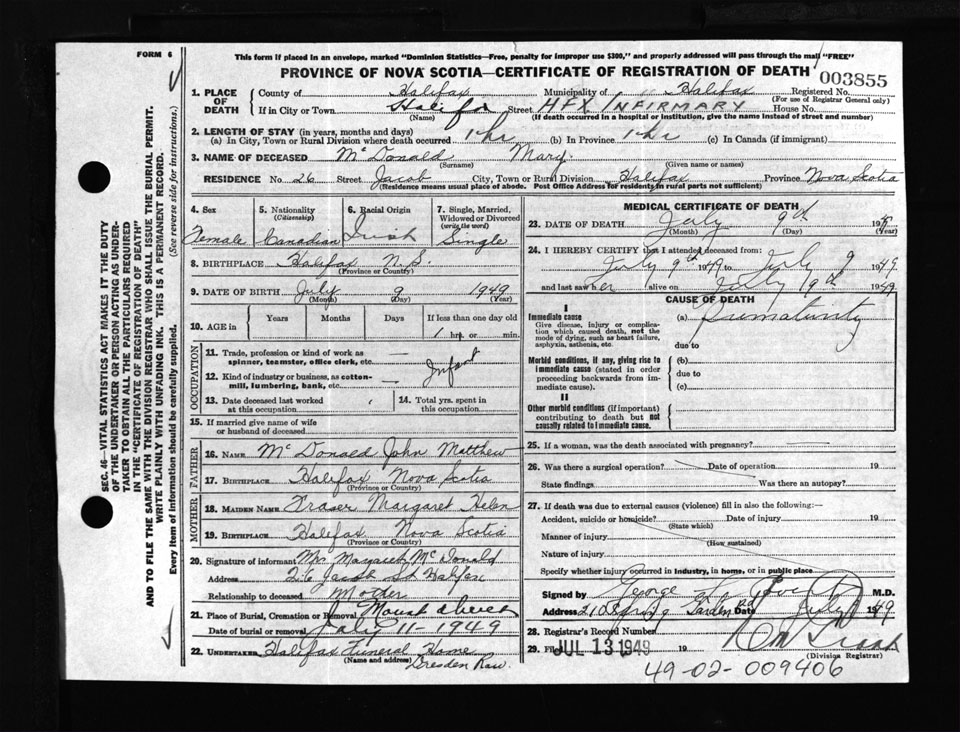 FORM 6
This form if placed in an envelope, marked "Dominion Statistics—Free, penalty for improper use $300," and properly addressed will pass through the mail "FREE"
PROVINCE OF NOVA SCOTIA—CERTIFICATE OF REGISTRATION OF DEATH
003855
1. PLACE OF DEATH
County of Halifax Municipality of " Halifax Registered No.
(For use of Registrar General only)
If in City or Town Halifax Street HFX INFIRMARY House No.
(Name) (If death occurred in a hospital or institution, give the name instead of street and number)
2. LENGTH OF STAY (in years, months and days)
(a) In City, Town or Rural Division where death occurred 1 hr (b) In Province 1 hr (c) In Canada (if immigrant)
3. NAME OF DECEASED McDonald Mary
(Surname) (Given name or names)
RESIDENCE No. 26 Street Jacob City, Town or Rural Division Halifax Province Nova Scotia
(Residence means usual place of abode. Post Office Address for residents in rural parts not sufficient)
4. Sex Female
5. Nationality (Citizenship) Canadian
6. Racial Origin Irish
7. Single, Married, Widowed or Divorced (write the word) Single
8. BIRTHPLACE Halifax N.S.
(Province or Country)
9. DATE OF BIRTH July 9 1949
(Month) (Day) (Year)
10. AGE in Years Months Days If less than one day old
1 hrs. or min.
OCCUPATION
11. Trade, profession or kind of work as spinner, teamster, office clerk, etc. —
12. Kind of industry or business, as cotton-mill, lumbering, bank, etc. — Infant
13. Date deceased last worked at this occupation
14. Total yrs. spent in this occupation
15. If married give name of wife or husband of deceased
FATHER
16. NAME McDonald John Matthew
17. BIRTHPLACE Halifax Nova Scotia
(Province or Country)
MOTHER
18. MAIDEN NAME Fraser Margaret Helen
19. BIRTHPLACE Halifax Nova Scotia
(Province or Country)
20. Signature of informant Mrs Margaret McDonald
Address 26 Jacob St Halifax
Relationship to deceased Mother
21. Place of Burial, Cremation or Removal Mount Olivet
Date of burial or removal July 11-1949
22. UNDERTAKER Halifax Funeral Home
(Name and address) Dresden Row.
MEDICAL CERTIFICATE OF DEATH
23. DATE OF DEATH July 9th 1949
(Month) (Day) (Year)
24. I HEREBY CERTIFY that I attended deceased from:
July 9th 1949 to July 9 1949
and last saw her alive on July 9th 1949
CAUSE OF DEATH
I
Immediate cause
Give disease, injury or complication which caused death, not the mode of dying, such as heart failure, asphyxia, asthenia, etc.
(a) Prematurity
due to
Morbid conditions, if any, giving rise to immediate cause (stated in order proceeding backwards from immediate cause).
(b)
due to
(c)
II
Other morbid conditions (if important) contributing to death but not causally related to immediate cause.
25. If a woman, was the death associated with pregnancy?
26. Was there a surgical operation? Date of operation 19
State findings Was there an autopsy?
27. If death was due to external causes (violence) fill in also the following:—
Accident, suicide or homicide? Date of injury 19
(State which)
Manner of injury
(How sustained)
Nature of injury
Specify whether injury occurred in Industry, in home, or in public place
Signed by George M.D.
Address 210 Spring Garden Rd Date July 1949
28. Registrar's Record Number
29. JUL 13 1949 19
(Division Registrar)
49-02-009406
SEC. 46—VITAL STATISTICS ACT MAKES IT THE DUTY
OF THE UNDERTAKER OR PERSON ACTING AS UNDER-
TAKER TO OBTAIN ALL THE PARTICULARS REQUIRED
IN THE "CERTIFICATE OF REGISTRATION OF DEATH"
AND TO FILE THE SAME WITH THE DIVISION REGISTRAR WHO SHALL ISSUE THE BURIAL PERMIT.
WRITE PLAINLY WITH UNFADING INK. THIS IS A PERMANENT RECORD.
Every item of information should be carefully supplied. (See reverse side for instructions.)